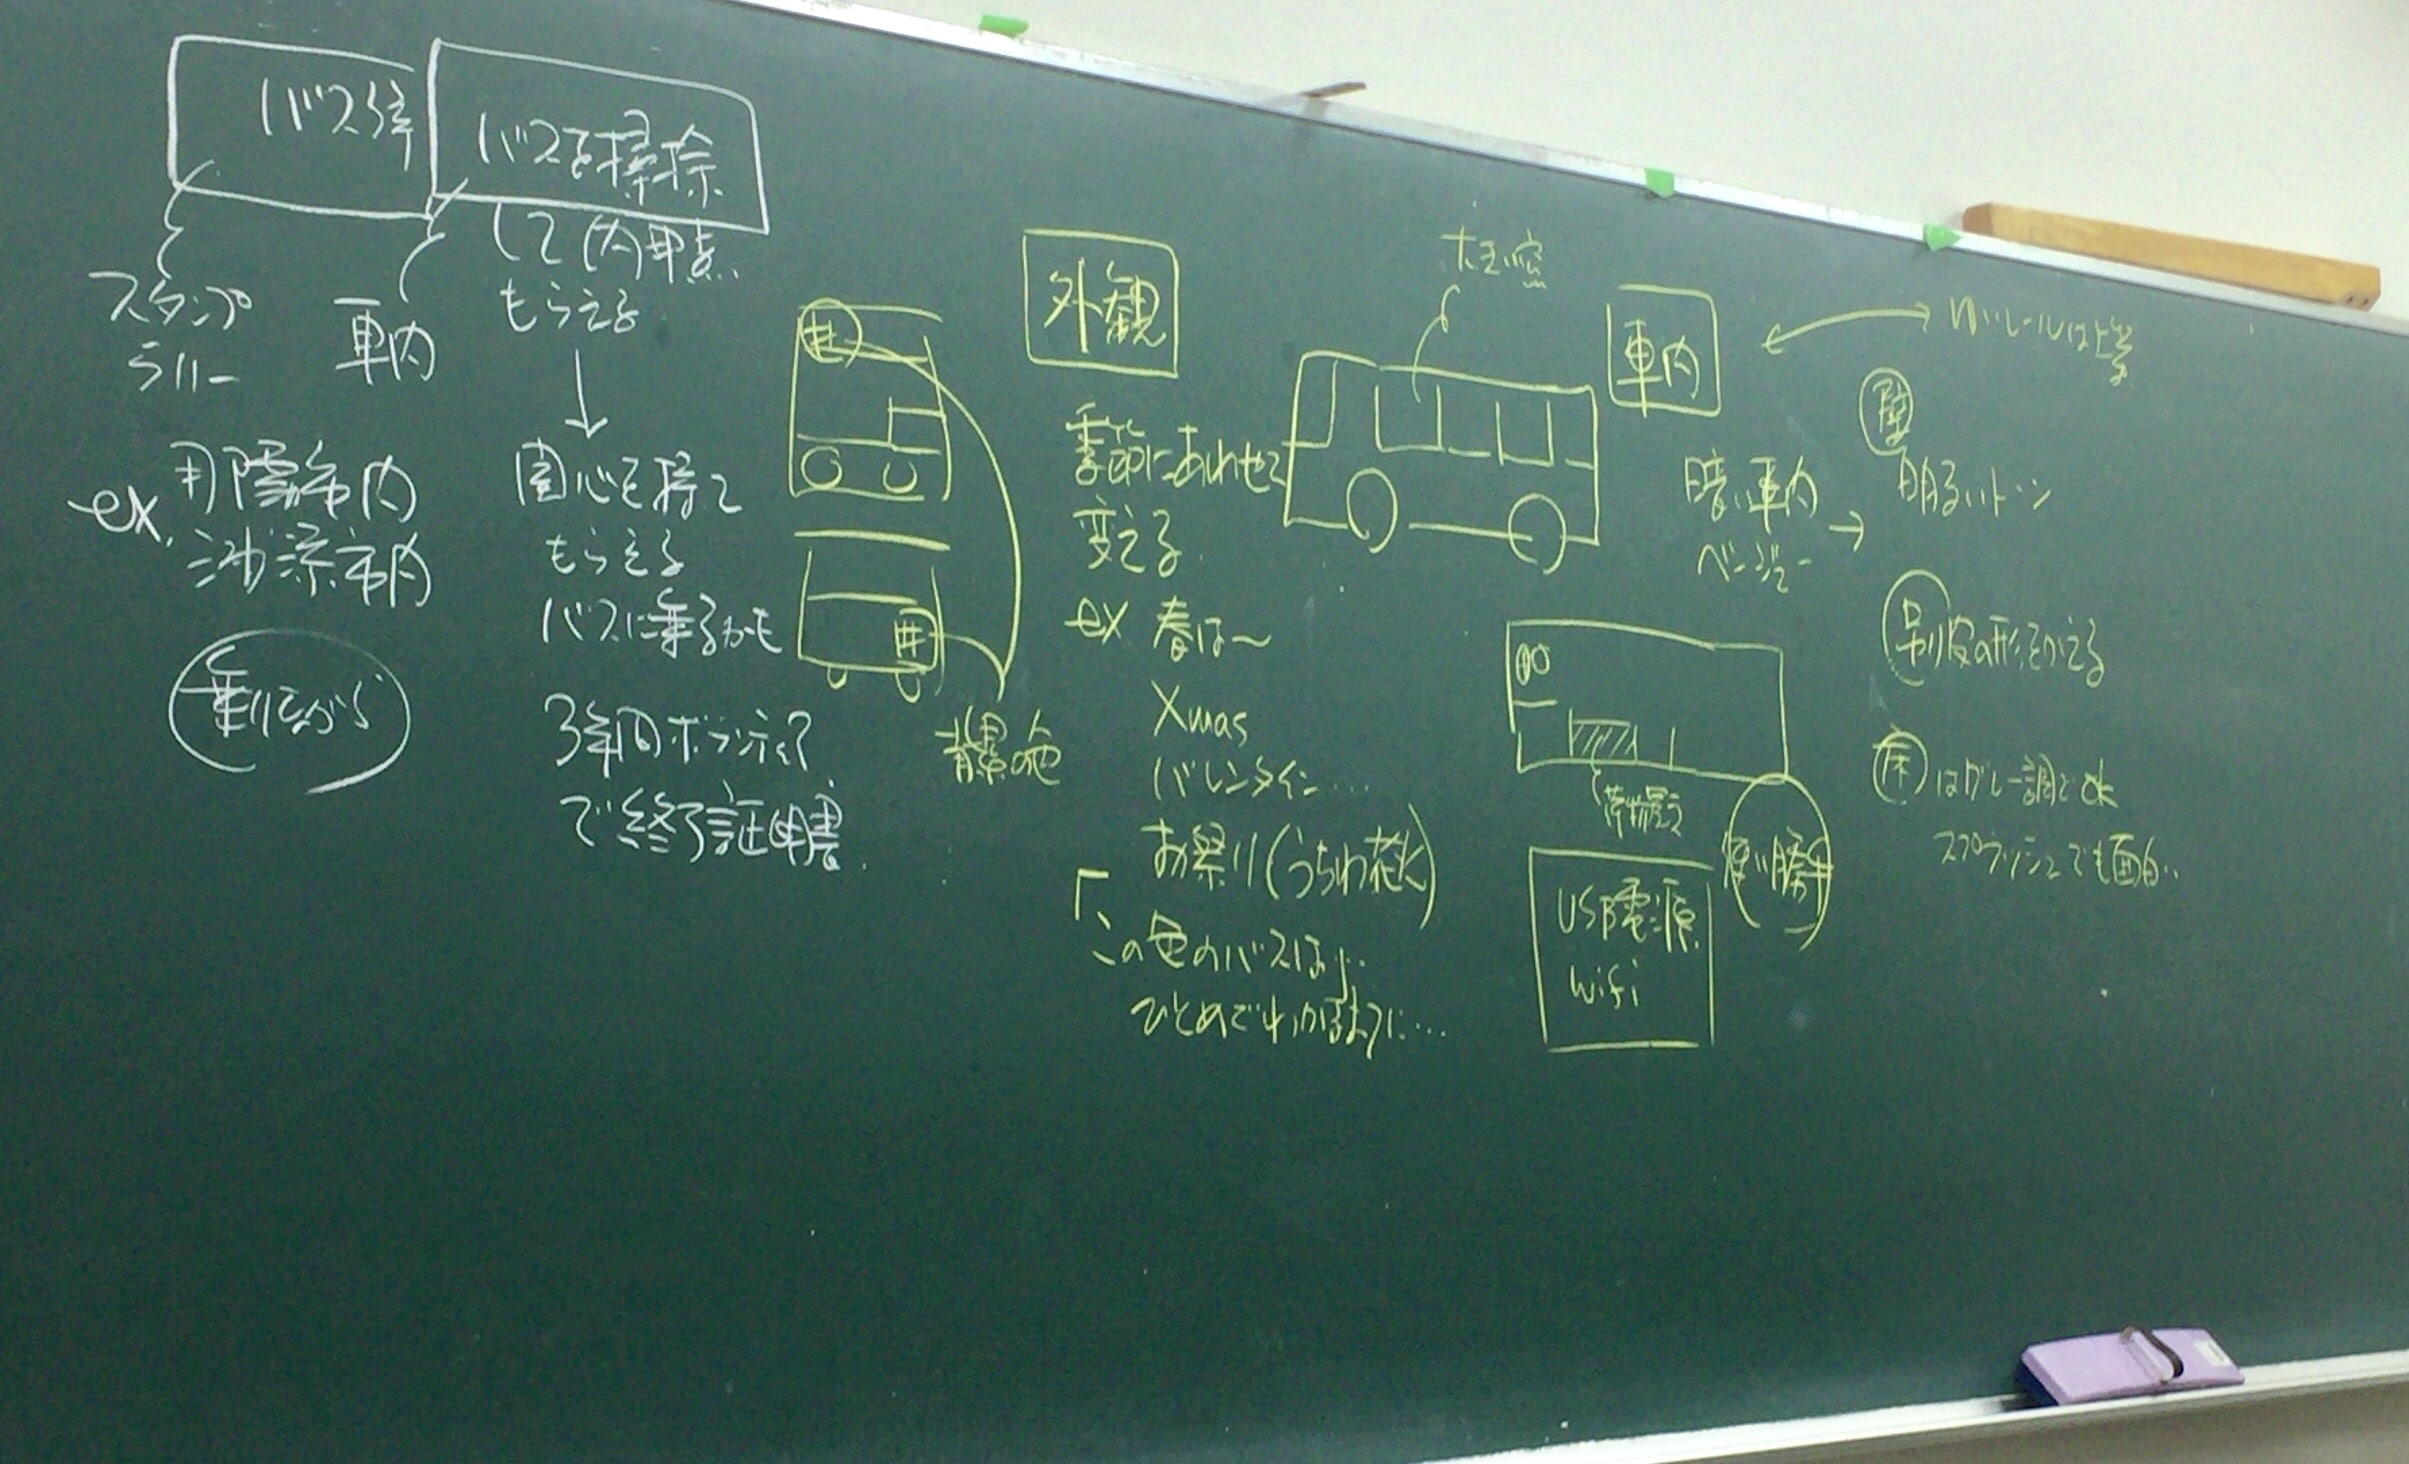 バス停
スタンプ
ラリー
車内
ex.
市内
市内
乗りながら
バスを掃除
して内申点
もらえる
関心を持って
もらえる
バスに乗るかも
3年間ボランティア
で終了証明書
外観
季節にあわせて
変える
ex 春は〜
Xmas
バレンタイン…
お祭り(うちわ花火)
「この色のバスは」…
ひとめでわかるように…
背景の色
大きい窓
荷物置き
使い勝手
USB電源
wifi
車内
暗い車内
ベージュー
壁
明るいトーン
吊り皮の形をかえる
床はグレー調でok
スプラッシュでも面白い